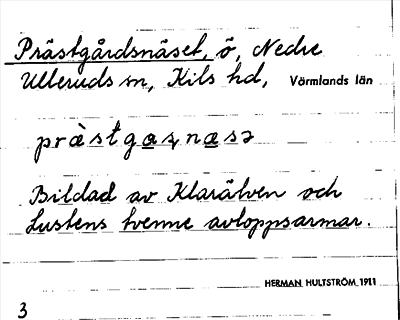 Prästgårdsnäset, ö, Nedre
Ulleruds sn, Kils hd, Värmlands län
Bildad av Klarälven och
Lustens tvenne avloppsarmar.
HERMAN HULTSTRÖM 1911
3